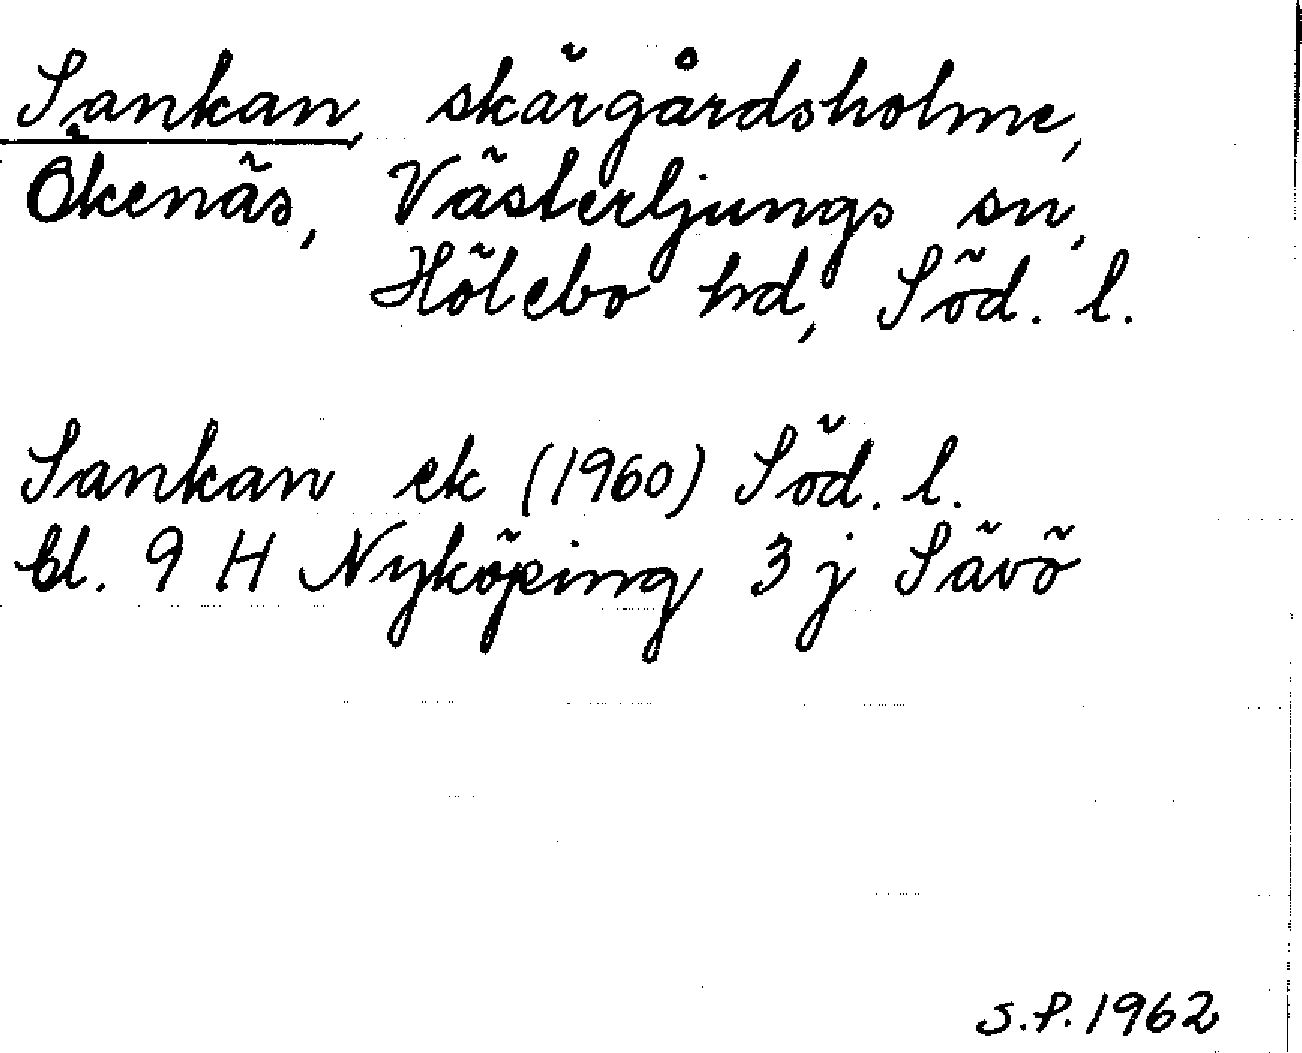 Sankan, skärgårdsholme,
Ökenäs, Västerljungs sn,
Hölebo hd, Söd. l.
Sankan ek (1960) Söd. l.
bl. 9 H Nyköping 3 j Sävö
S.P. 1962